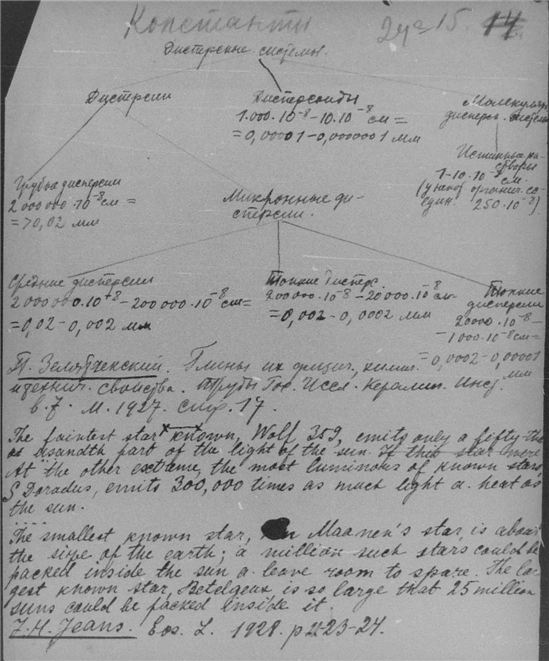 Константы 15. 14
Дисперсные системы.
Дисперсии
Дисперсоиды
1.000·10⁻⁸ – 10·10⁻⁸ см =
= 0,00001 – 0,0000001 мм
Молекуляр.
дисперс.
Истинные ра-
створы
1-10·10⁻⁸ см.
(у органич. со-
един. 250·10⁻⁸).
Грубые дисперсии
2 000 000·10⁻⁸ см =
= 70,02 мм
Микронные ди-
сперсии.
Средние дисперсии
2 000 000·10⁺⁸ – 200 000·10⁻⁸ см =
= 0,02 – 0,002 мм
Тонкие дисперс.
200 000·10⁻⁸ – 20 000·10⁻⁸ см
= 0,002 – 0,0002 мм
Тонкие
дисперсии
20000·10⁻⁸ –
– 1000·10⁻⁸ см
= 0,0002 – 0,00001
мм
П. Земятченский. Глины их физич., химич.
и технич. свойства. Труды Гос. Иссл. Керамич. Инст.
в. 7. М. 1927. стр. 17.
The faintest star known, Wolf 359, emits only a fifty tho
usandth part of the light of the sun. If this star were
At the other extreme, the most luminous of known stars
S Doradus, emits 300,000 times as much light a. heat as
the sun.
The smallest known star, Van Maanen's star, is about
the size of the earth; a million such stars could be
packed inside the sun a. leave room to spare. The lar
gest known star, Betelgeux, is so large that 25 million
suns could be packed inside it.
J. H. Jeans. Eos. L. 1928. p 23-24.